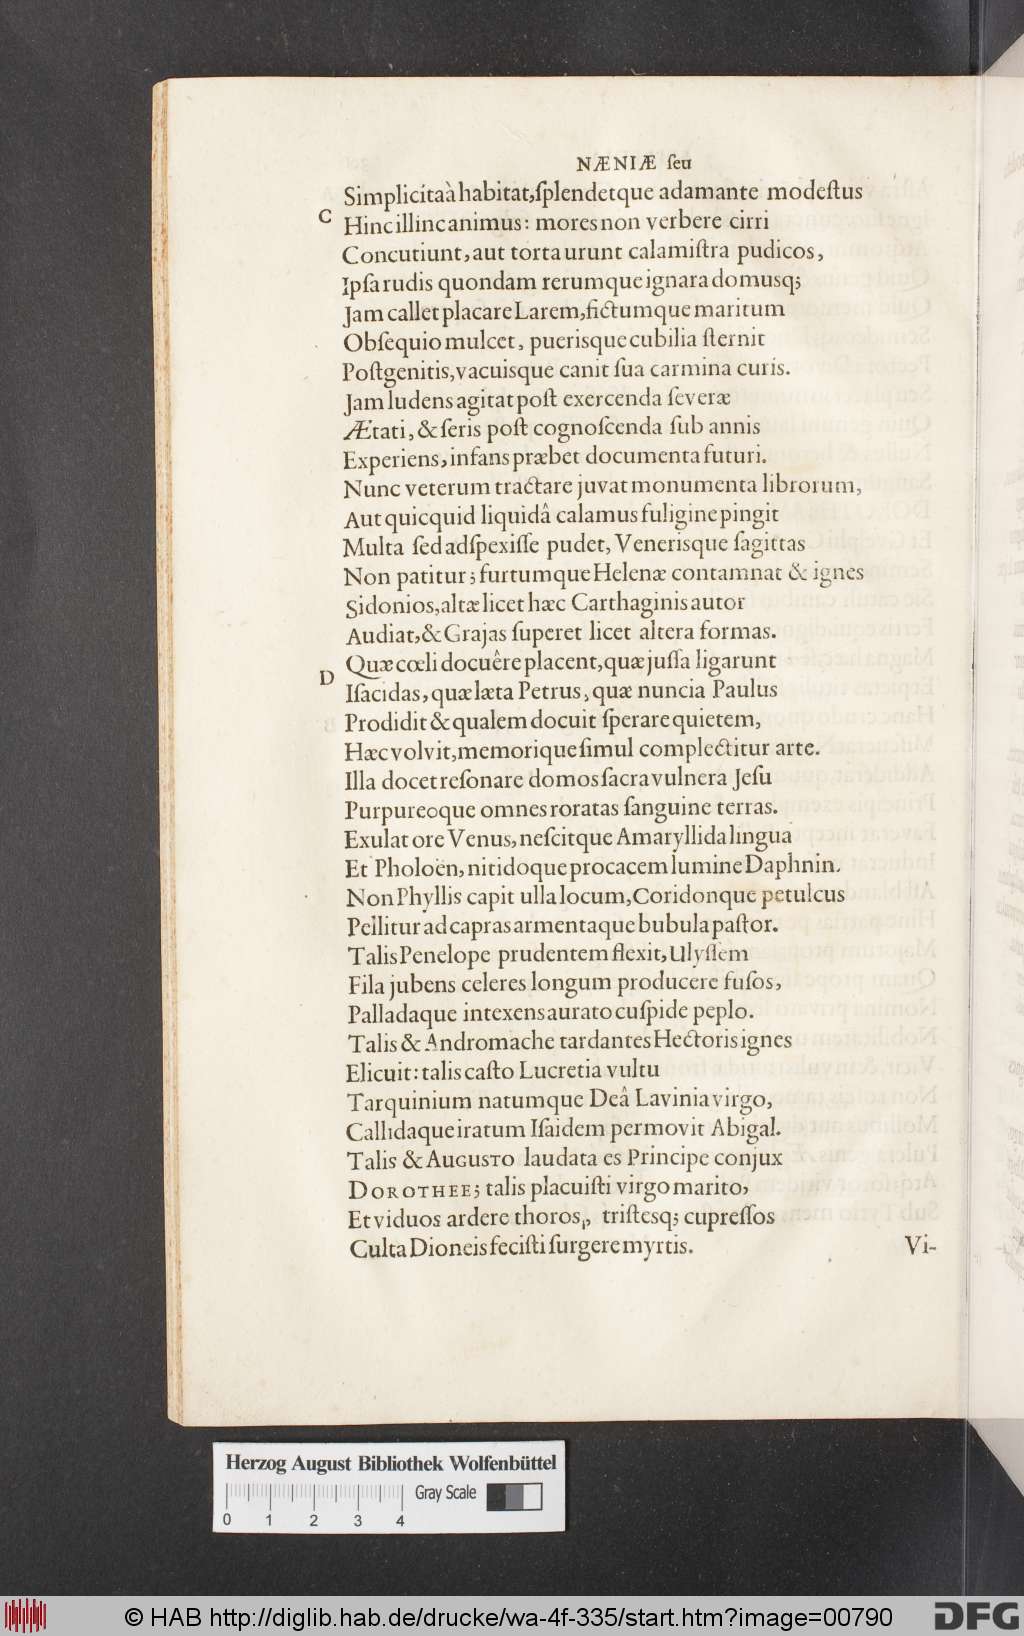 NÆNIÆ ſeu
Simplicitaà habitat,ſplendetque adamante modeſtus
C
Hinc illinc animus: mores non verbere cirri
Concutiunt, aut torta urunt calamiſtra pudicos,
Ipſa rudis quondam rerumque ignara domusq;
Jam callet placare Larem, fictumque maritum
Obſequio mulcet, puerisque cubilia ſternit
Poſtgenitis, vacuisque canit ſua carmina curis.
Jam ludens agitat poſt exercenda ſeveræ
Ætati, & ſeris poſt cognoſcenda ſub annis
Experiens, infans præbet documenta futuri.
Nunc veterum tractare juvat monumenta librorum,
Aut quicquid liquidâ calamus fuligine pingit
Multa ſed adſpexiſſe pudet, Venerisque ſagittas
Non patitur; furtumque Helenæ contamnat & ignes
Sidonios, altæ licet hæc Carthaginis autor
Audiat, & Grajas ſuperet licet altera formas.
Quæ cœli docuêre placent, quæ juſſa ligarunt
D
Iſacidas, quæ læta Petrus, quæ nuncia Paulus
Prodidit & qualem docuit ſperare quietem,
Hæc volvit, memorique ſimul complectitur arte.
Illa docet reſonare domos ſacra vulnera Jeſu
Purpureoque omnes roratas ſanguine terras.
Exulat ore Venus, neſcitque Amaryllida lingua
Et Pholoën, nitidoque procacem lumine Daphnin.
Non Phyllis capit ulla locum, Coridonque petulcus
Pellitur ad capras armentaque bubula paſtor.
Talis Penelope prudentem flexit, Ulyſſem
Fila jubens celeres longum producere fuſos,
Palladaque intexens aurato cuſpide peplo.
Talis & Andromache tardantes Hectoris ignes
Elicuit: talis caſto Lucretia vultu
Tarquinium natumque Deâ Lavinia virgo,
Callidaque iratum Iſaidem permovit Abigal.
Talis & AUGUSTO laudata es Principe conjux
DOROTHEE; talis placuiſti virgo marito,
Et viduos ardere thoros, triſtesq; cupreſſos
Culta Dioneis feciſti ſurgere myrtis.
Vi-
Herzog August Bibliothek Wolfenbüttel
Gray Scale
0 1 2 3 4
© HAB http://diglib.hab.de/drucke/wa-4f-335/start.htm?image=00790
DFG